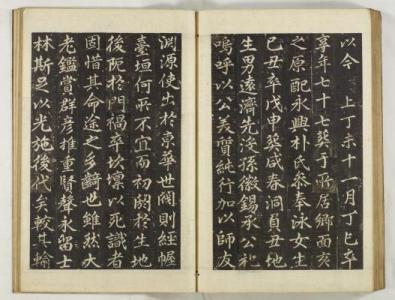 以今　上丁未十一月丁巳卒
享年七十七葵于平居鄉面亥
之原配永興朴氏叅奉泳女生
己丑卒戊申葬咸春洞負丑地
生男遠濟先沒孫徽錫承公祀
嗚呼以公美質純行加以師友
淵源使出於京華世閥則經幄
臺垣何所不宜而初闢於生地
後阨於門禍卒坎壈以死識者
固惜其命途之多齬也雖然大
老鑑賞群彦推重賢聲永留士
林斯足以光施後代矣較其輪